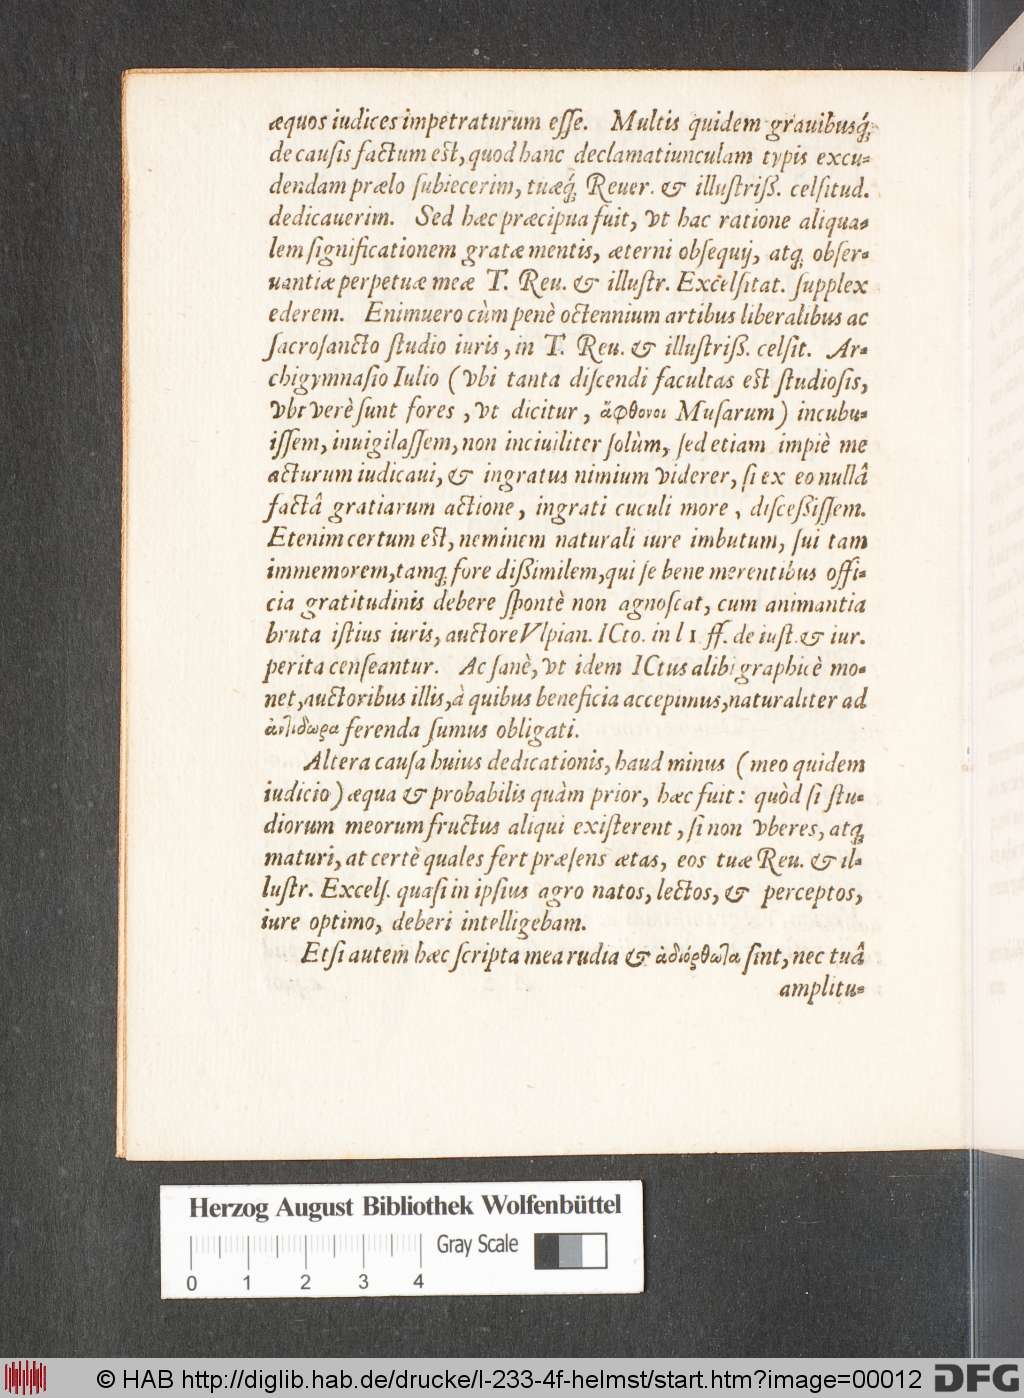 æquos iudices impetraturum eſſe. Multis quidem grauibusq́;
de cauſis factum eſt, quod hanc declamatiunculam typis excu-
dendam prælo ſubiecerim, tuæq́; Reuer. & illuſtriß. celſitud.
dedicauerim. Sed hæc præcipua fuit, vt hac ratione aliqua-
lem ſignificationem gratæ mentis, æterni obſequij, atq; obſer-
uantiæ perpetuæ meæ T. Reu. & illuſtr. Excelſitat. ſupplex
ederem. Enimuero cùm penè octennium artibus liberalibus ac
ſacroſancto ſtudio iuris, in T. Reu. & illuſtriß. celſit. Ar-
chigymnaſio Iulio (vbi tanta diſcendi facultas eſt ſtudioſis,
vbi verè ſunt fores, vt dicitur, ἄφθονοι Muſarum) incubu-
iſſem, inuigilaſſem, non inciuiliter ſolùm, ſed etiam impiè me
acturum iudicaui, & ingratus nimium viderer, ſi ex eo nullâ
factâ gratiarum actione, ingrati cuculi more, diſceßiſſem.
Etenim certum eſt, neminem naturali iure imbutum, ſui tam
immemorem, tamq; fore dißimilem, qui ſe bene merentibus offi-
cia gratitudinis debere ſpontè non agnoſcat, cum animantia
bruta iſtius iuris, auctore Vlpian. ICto. in l 1 ff. de iuſt. & iur.
perita cenſeantur. Ac ſanè, vt idem ICtus alibi graphicè mo-
net, auctoribus illis, à quibus beneficia accepimus, naturaliter ad
ἀντίδωρα ferenda ſumus obligati.
Altera cauſa huius dedicationis, haud minus (meo quidem
iudicio) æqua & probabilis quàm prior, hæc fuit: quòd ſi ſtu-
diorum meorum fructus aliqui exiſterent, ſi non vberes, atq;
maturi, at certè quales fert præſens ætas, eos tuæ Reu. & il-
luſtr. Excelſ. quaſi in ipſius agro natos, lectos, & perceptos,
iure optimo, deberi intelligebam.
Etſi autem hæc ſcripta mea rudia & ἀδιόρθωτα ſint, nec tuâ
amplitu-
Herzog August Bibliothek Wolfenbüttel
Gray Scale
0 1 2 3 4
© HAB http://diglib.hab.de/drucke/l-233-4f-helmst/start.htm?image=00012
DFG